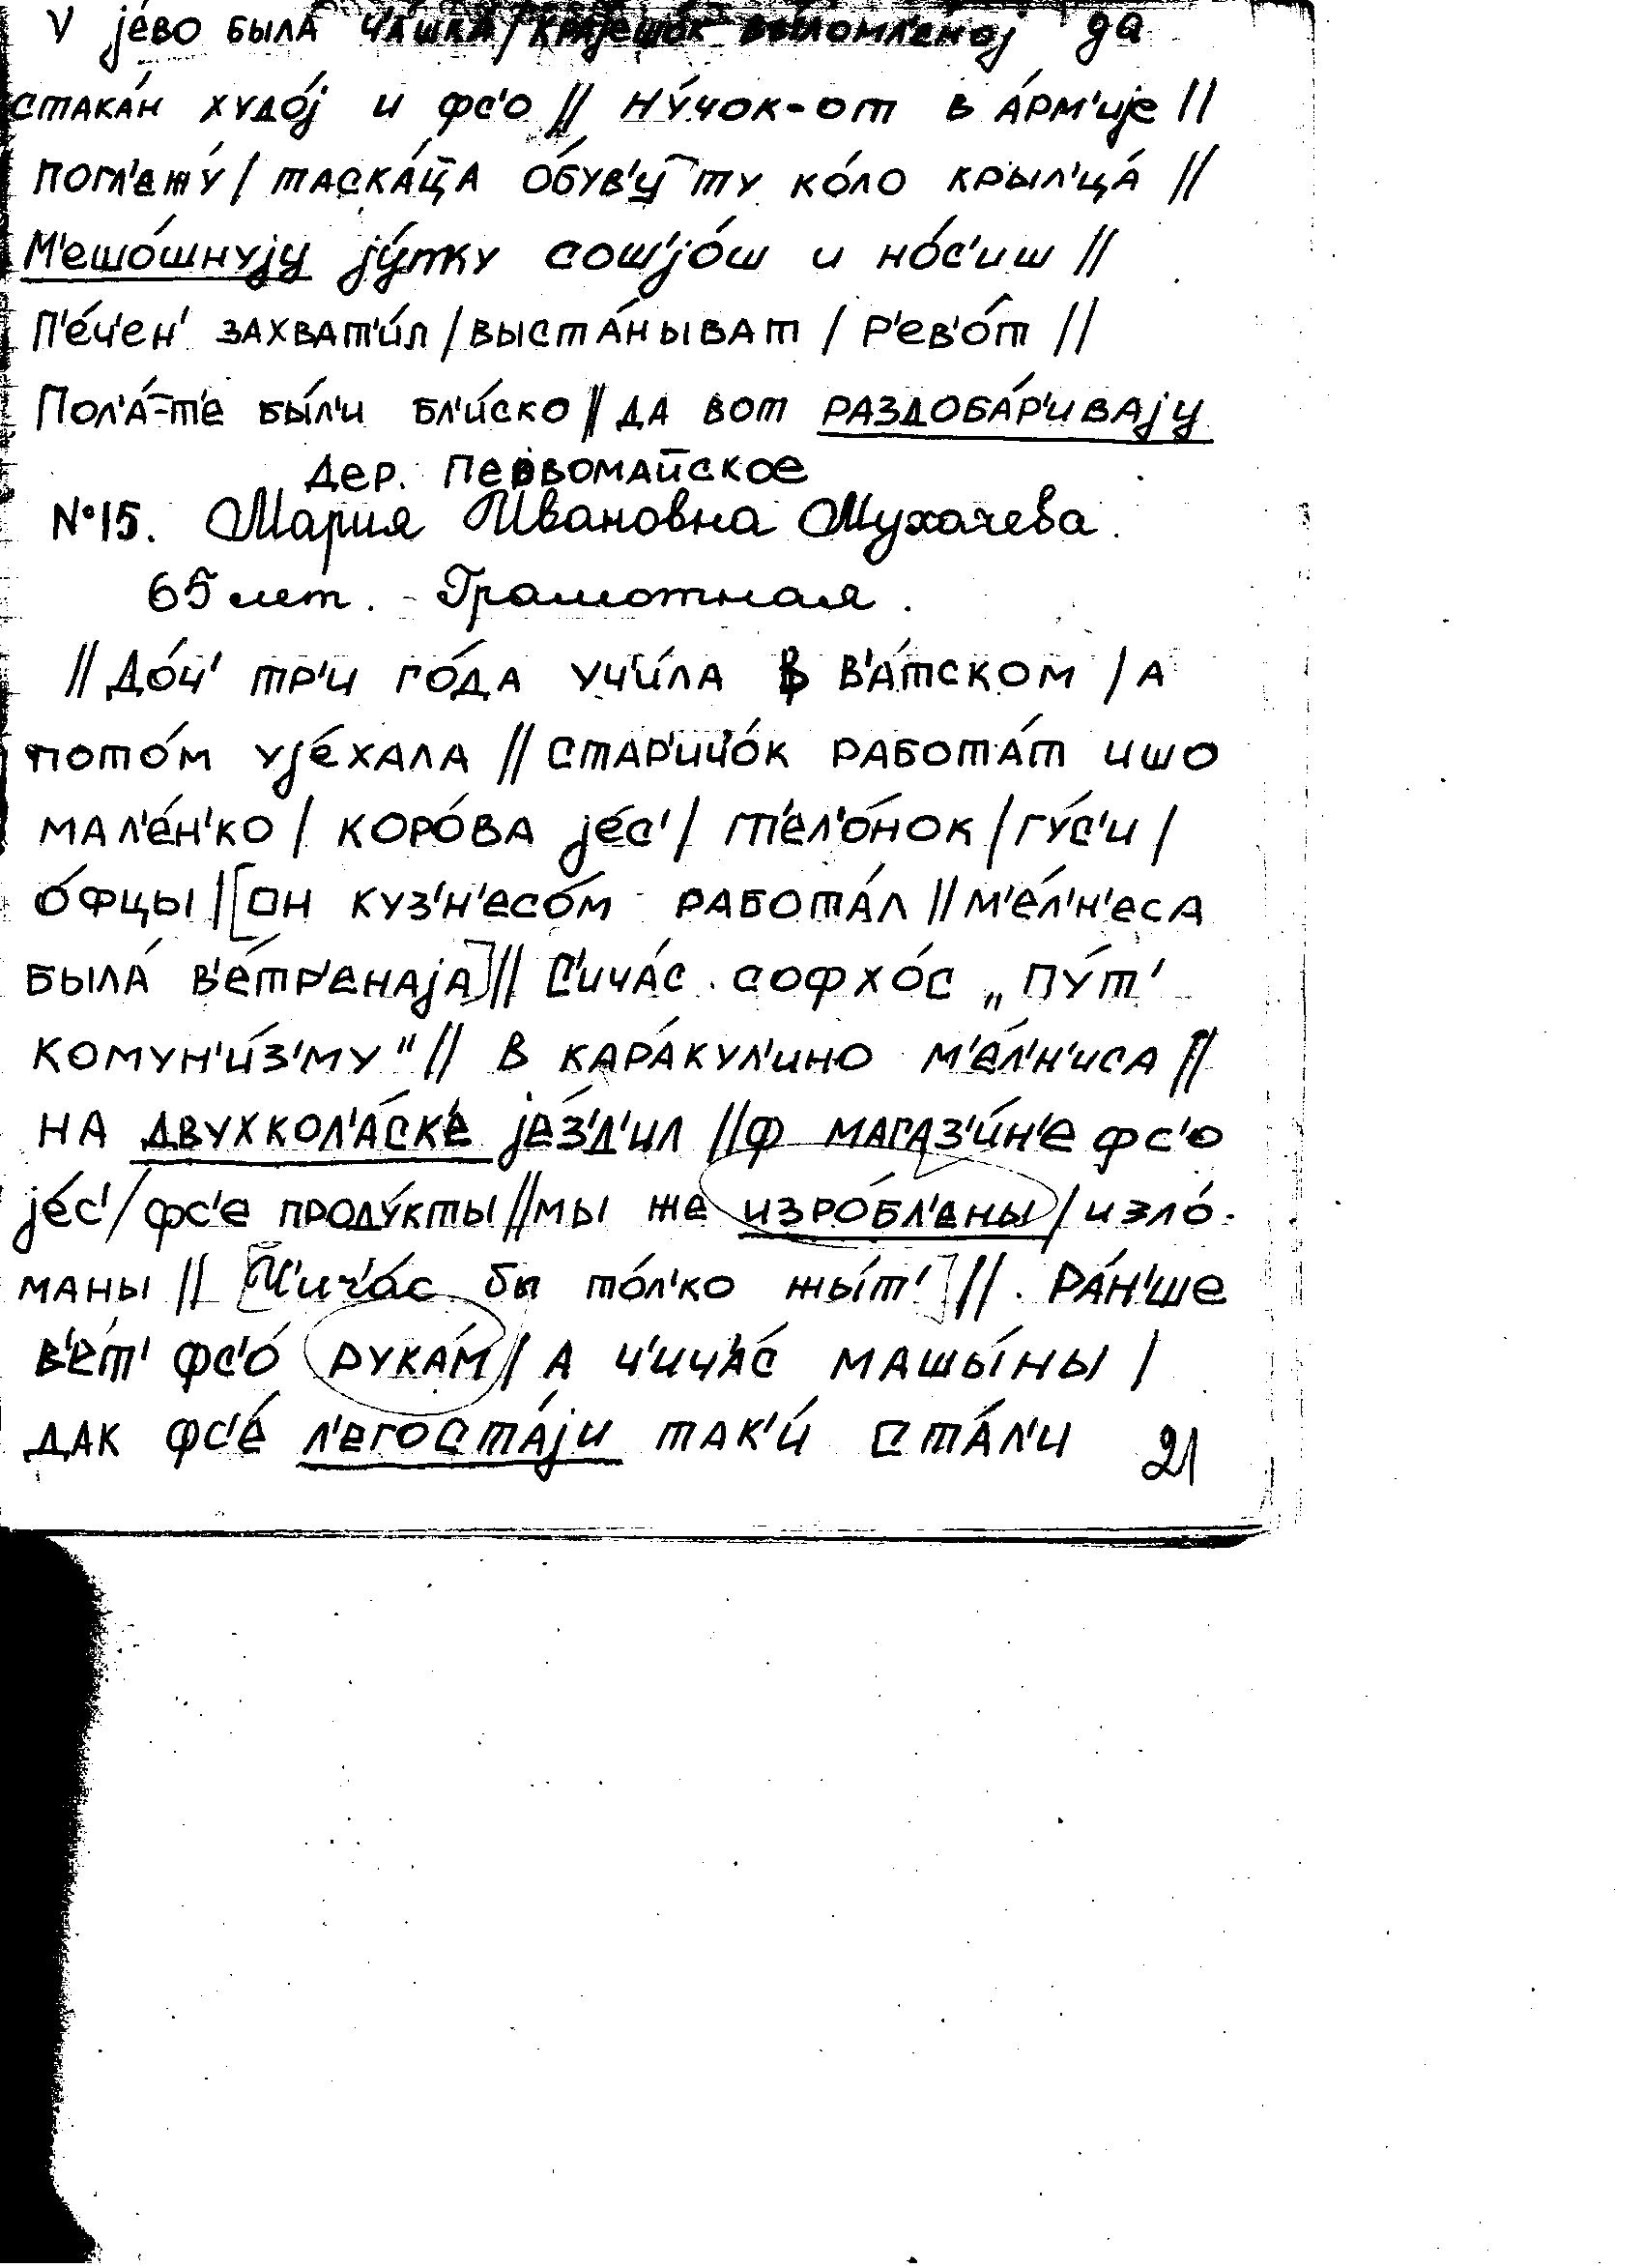 У је́во была́ ча́шка / краjешо́к вы́ломл'еноj да
стака́н худо́j и фс'о // ну́чок-от в а́рм'иjе //
погл'ежу́ / таска́ца о́був'у ту ко́ло крыл'ца́ //
М'ешо́шнуjу jу́пку сош'jо́ш и но́с'иш //
П'е́ч'ен' захват'и́л / выста́ныват / р'ев'о́т //
Пол'а́-т'е бы́л'и бл'и́ско // да вот раздоба́р'иваjу
дер. Первомайское
№15. Мария Ивановна Мухачева.
65 лет. - Грамотная.
// До́ч' тр'и го́да уч'и́ла в В'а́тском / а
пото́м уjе́хала // стар'ич'о́к работа́т ишо
мал'е́н'ко / коро́ва jе́с' / т'ел'о́нок / гу́с'и /
о́фцы / [он куз'н'есо́м работа́л // м'е́л'н'еса
была́ в'е́тр'енаjа] // С'ича́с софхо́с „пу́т'
комун'и́з'му" // в кара́кул'ино м'е́л'н'иса //
на двухкол'а́ск'е jе́з'д'ил // ф магаз'и́н'е фс'о
jе́с' / фс'е проду́кты // мы же изро́бл'ены / изло́-
маны // [Ч'ич'а́с бы то́л'ко жы́т'] // Ра́н'ше
в'е́т' фс'о́ рука́м / а ч'ич'а́с машы́ны /
дак фс'е́ л'егоста́jи так'и́ ста́л'и 21